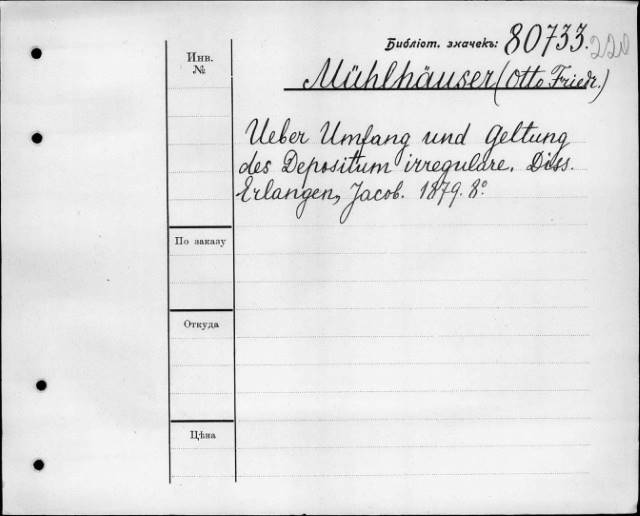 Библіот. значекъ: 80733. 220
Инв.
№
Mühlhäuser (Otto Friedr.)
Ueber Umfang und Geltung
des Depositum irregulare. Diss.
Erlangen, Jacob. 1879. 8°
По заказу
Откуда
Цѣна